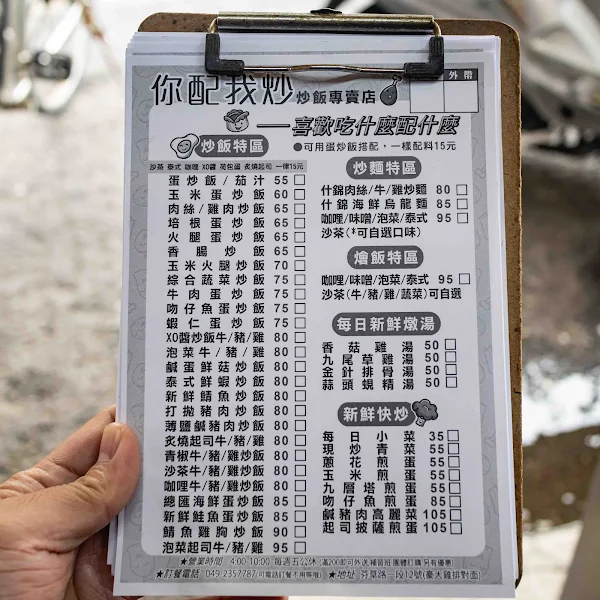 你配我炒 炒飯專賣店
外帶
一喜歡吃什麼配什麼
炒飯特區
●可用蛋炒飯搭配,一樣配料15元
沙茶 泰式 咖哩 XO醬 荷包蛋 炙燒起司 一律15元
蛋炒飯/茄汁 55
玉米蛋炒飯 60
肉絲/雞肉炒飯 65
培根蛋炒飯 65
火腿蛋炒飯 65
香腸炒飯 65
玉米火腿炒飯 70
綜合蔬菜炒飯 75
牛肉蛋炒飯 75
吻仔魚蛋炒飯 75
蝦仁蛋炒飯 75
XO醬炒飯牛/豬/雞 80
泡菜牛/豬/雞 80
鹹蛋鮮菇炒飯 80
泰式鮮蝦炒飯 80
新鮮鯖魚炒飯 80
打拋豬肉炒飯 80
薄鹽鹹豬肉炒飯 80
炙燒起司牛/豬/雞 80
青椒牛/豬/雞炒飯 80
沙茶牛/豬/雞炒飯 80
咖哩牛/豬/雞炒飯 80
總匯海鮮蛋炒飯 85
新鮮鮭魚蛋炒飯 85
鯖魚雞胸炒飯 90
泡菜起司牛/豬/雞 95
炒麵特區
什錦肉絲/牛/雞炒麵 80
什錦海鮮烏龍麵 85
咖哩/味噌/泡菜/泰式 95
沙茶(*可自選口味)
燴飯特區
咖哩/味噌/泡菜/泰式 95
沙茶(牛/豬/雞/蔬菜)可自選
每日新鮮燉湯
香菇雞湯 50
九尾草雞湯 50
金針排骨湯 50
蒜頭蜆精湯 50
新鮮快炒
每日小菜 35
現炒青菜 55
蔥花煎蛋 55
玉米煎蛋 55
九層塔煎蛋 55
吻仔魚煎蛋 85
鹹豬肉高麗菜 105
起司披薩煎蛋 105
★營業時間 4:00-10:00 每週五公休 (滿200即可外送 補習班 團體訂購 另有優惠)
★訂餐電話 049-2357787(可電話訂餐不用等喔) ★地址 芬草路一段12號(豪大雞排對面)